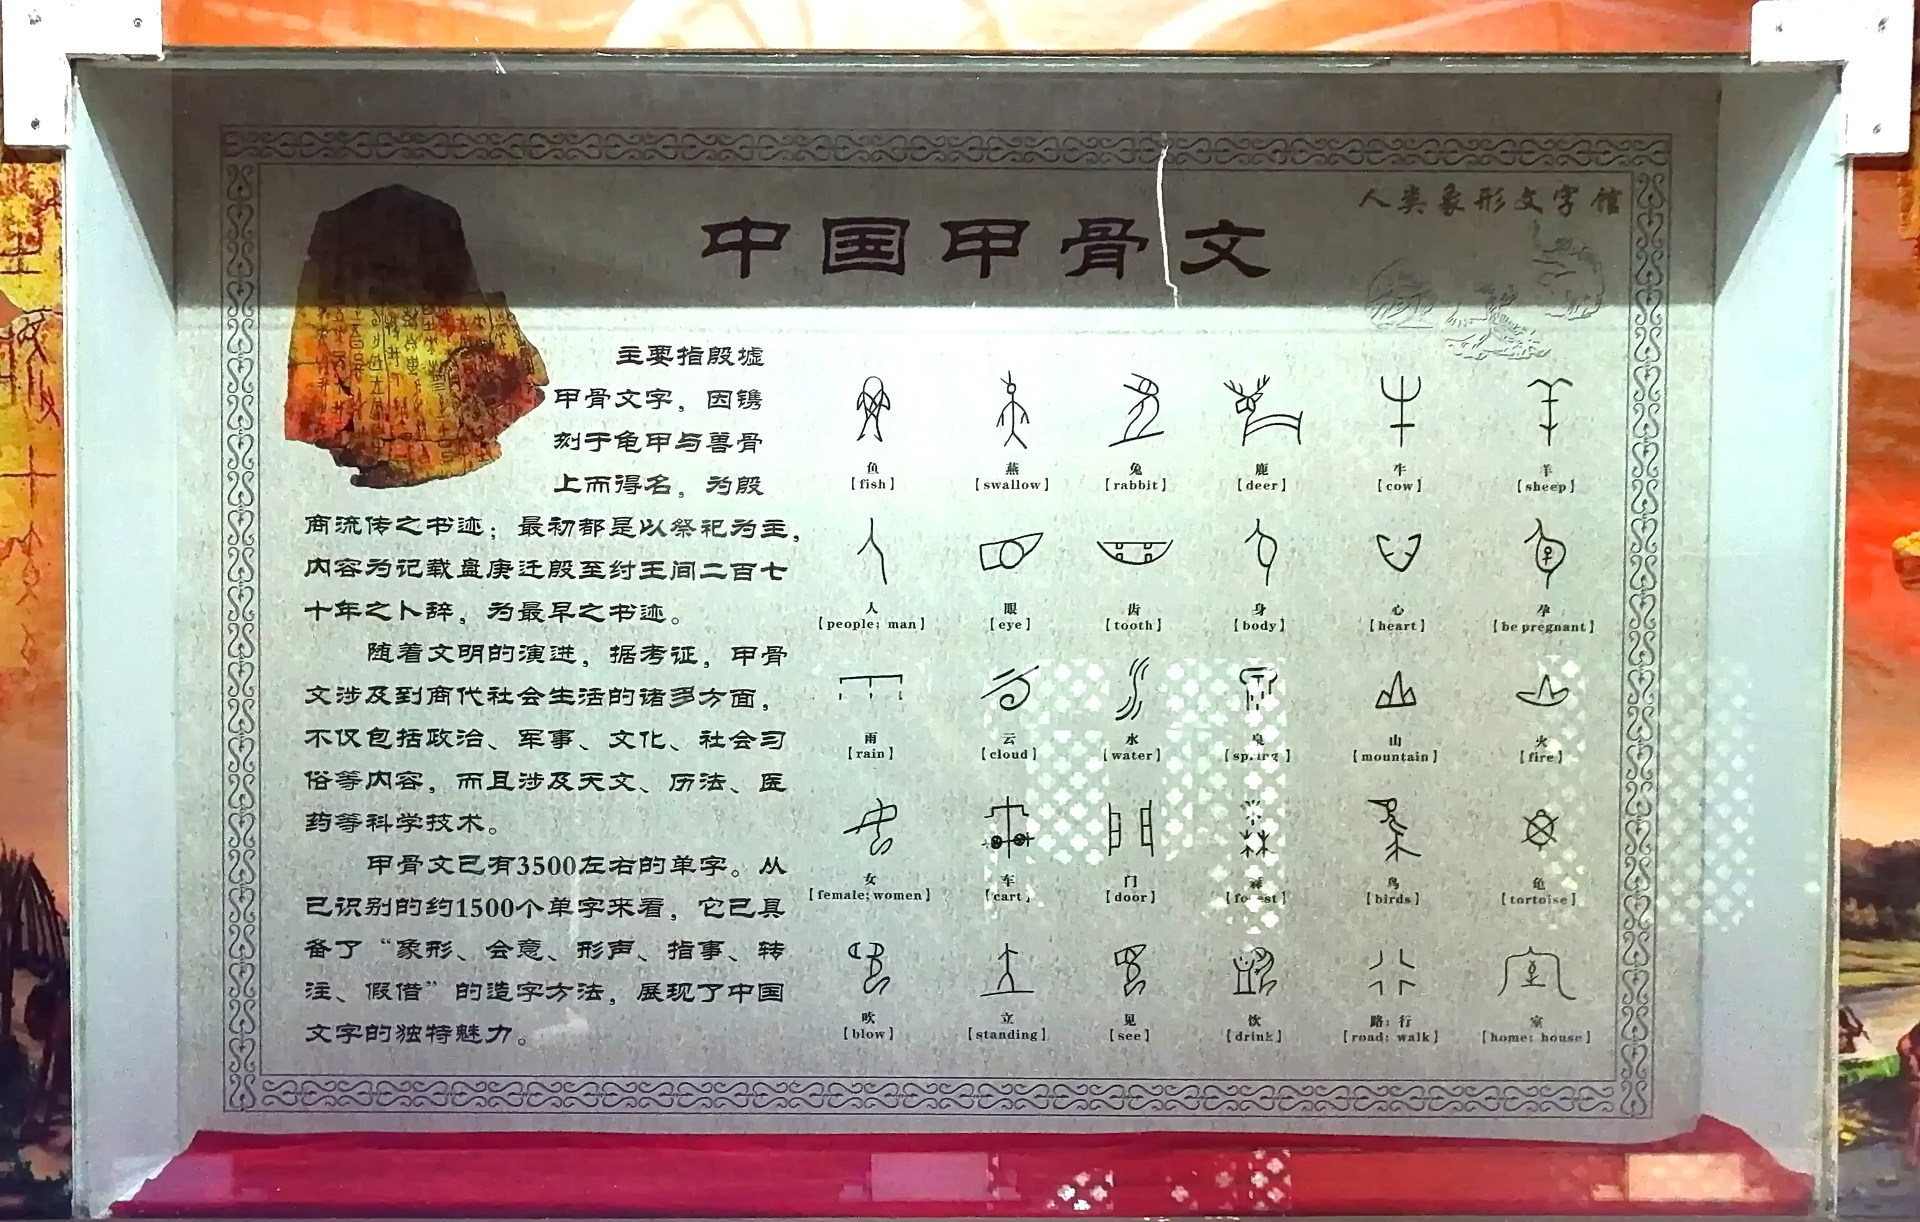 人类象形文字馆
中国甲骨文
主要指殷墟
甲骨文字，因镌
刻于龟甲与兽骨
上而得名，为殷
商流传之书迹；最初都是以祭祀为主，
内容为记载盘庚迁殷至纣王间二百七
十年之卜辞，为最早之书迹。
随着文明的演进，据考证，甲骨
文涉及到商代社会生活的诸多方面，
不仅包括政治、军事、文化、社会习
俗等内容，而且涉及天文、历法、医
药等科学技术。
甲骨文已有3500左右的单字。从
已识别的约1500个单字来看，它已具
备了“象形、会意、形声、指事、转
注、假借”的造字方法，展现了中国
文字的独特魅力。
鱼 燕 兔 鹿 牛 羊
[fish] [swallow] [rabbit] [deer] [cow] [sheep]
人 眼 齿 身 心 孕
[people; man] [eye] [tooth] [body] [heart] [be pregnant]
雨 云 水 泉 山 火
[rain] [cloud] [water] [spring] [mountain] [fire]
女 车 门 森 鸟 龟
[female; women] [cart] [door] [forest] [birds] [tortoise]
吹 立 见 饮 路; 行 室
[blow] [standing] [see] [drink] [road; walk] [home; house]